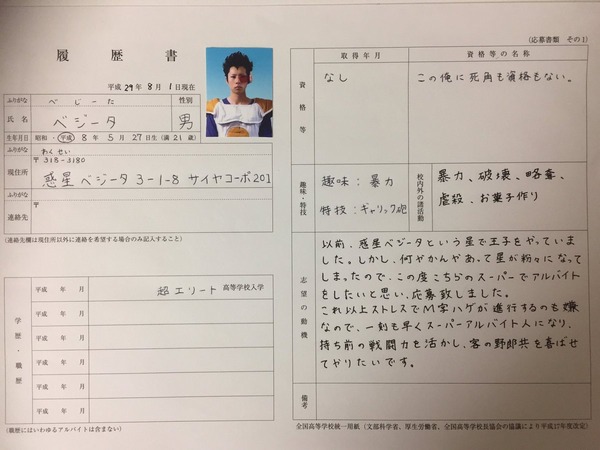 (応募書類 その1)
履歴書
平成29年8月1日現在
ふりがな べじーた 性別
氏名 ベジータ 男
生年月日 昭和・平成 8年5月27日生(満21歳)
ふりがな わくせい
〒318-3180
現住所 惑星ベジータ3-1-8 サイヤコーポ201
ふりがな
連絡先 〒
(連絡先欄は現住所以外に連絡を希望する場合のみ記入すること)
学歴・職歴
平成 年 月 超エリート高等学校入学
平成 年 月
平成 年 月
平成 年 月
平成 年 月
平成 年 月
(職歴にはいわゆるアルバイトは含まない)
資格等
取得年月 資格等の名称
なし この俺に死角も資格もない。
趣味・特技
趣味:暴力
特技:ギャリック砲
校内外の諸活動
暴力、破壊、略奪、
虐殺、お菓子作り
志望の動機
以前、惑星ベジータという星で王子をやっていま
した。しかし、何やかんやあって星が粉々になって
しまったので、この度こちらのスーパーでアルバイト
をしたいと思い、応募致しました。
これ以上ストレスでM字ハゲが進行するのも嫌
なので、一刻も早くスーパーアルバイト人になり、
持ち前の戦闘力を活かし、客の野郎共を喜ばせ
てやりたいです。
備考
全国高等学校統一用紙(文部科学省、厚生労働省、全国高等学校長協会の協議により平成17年度改定)